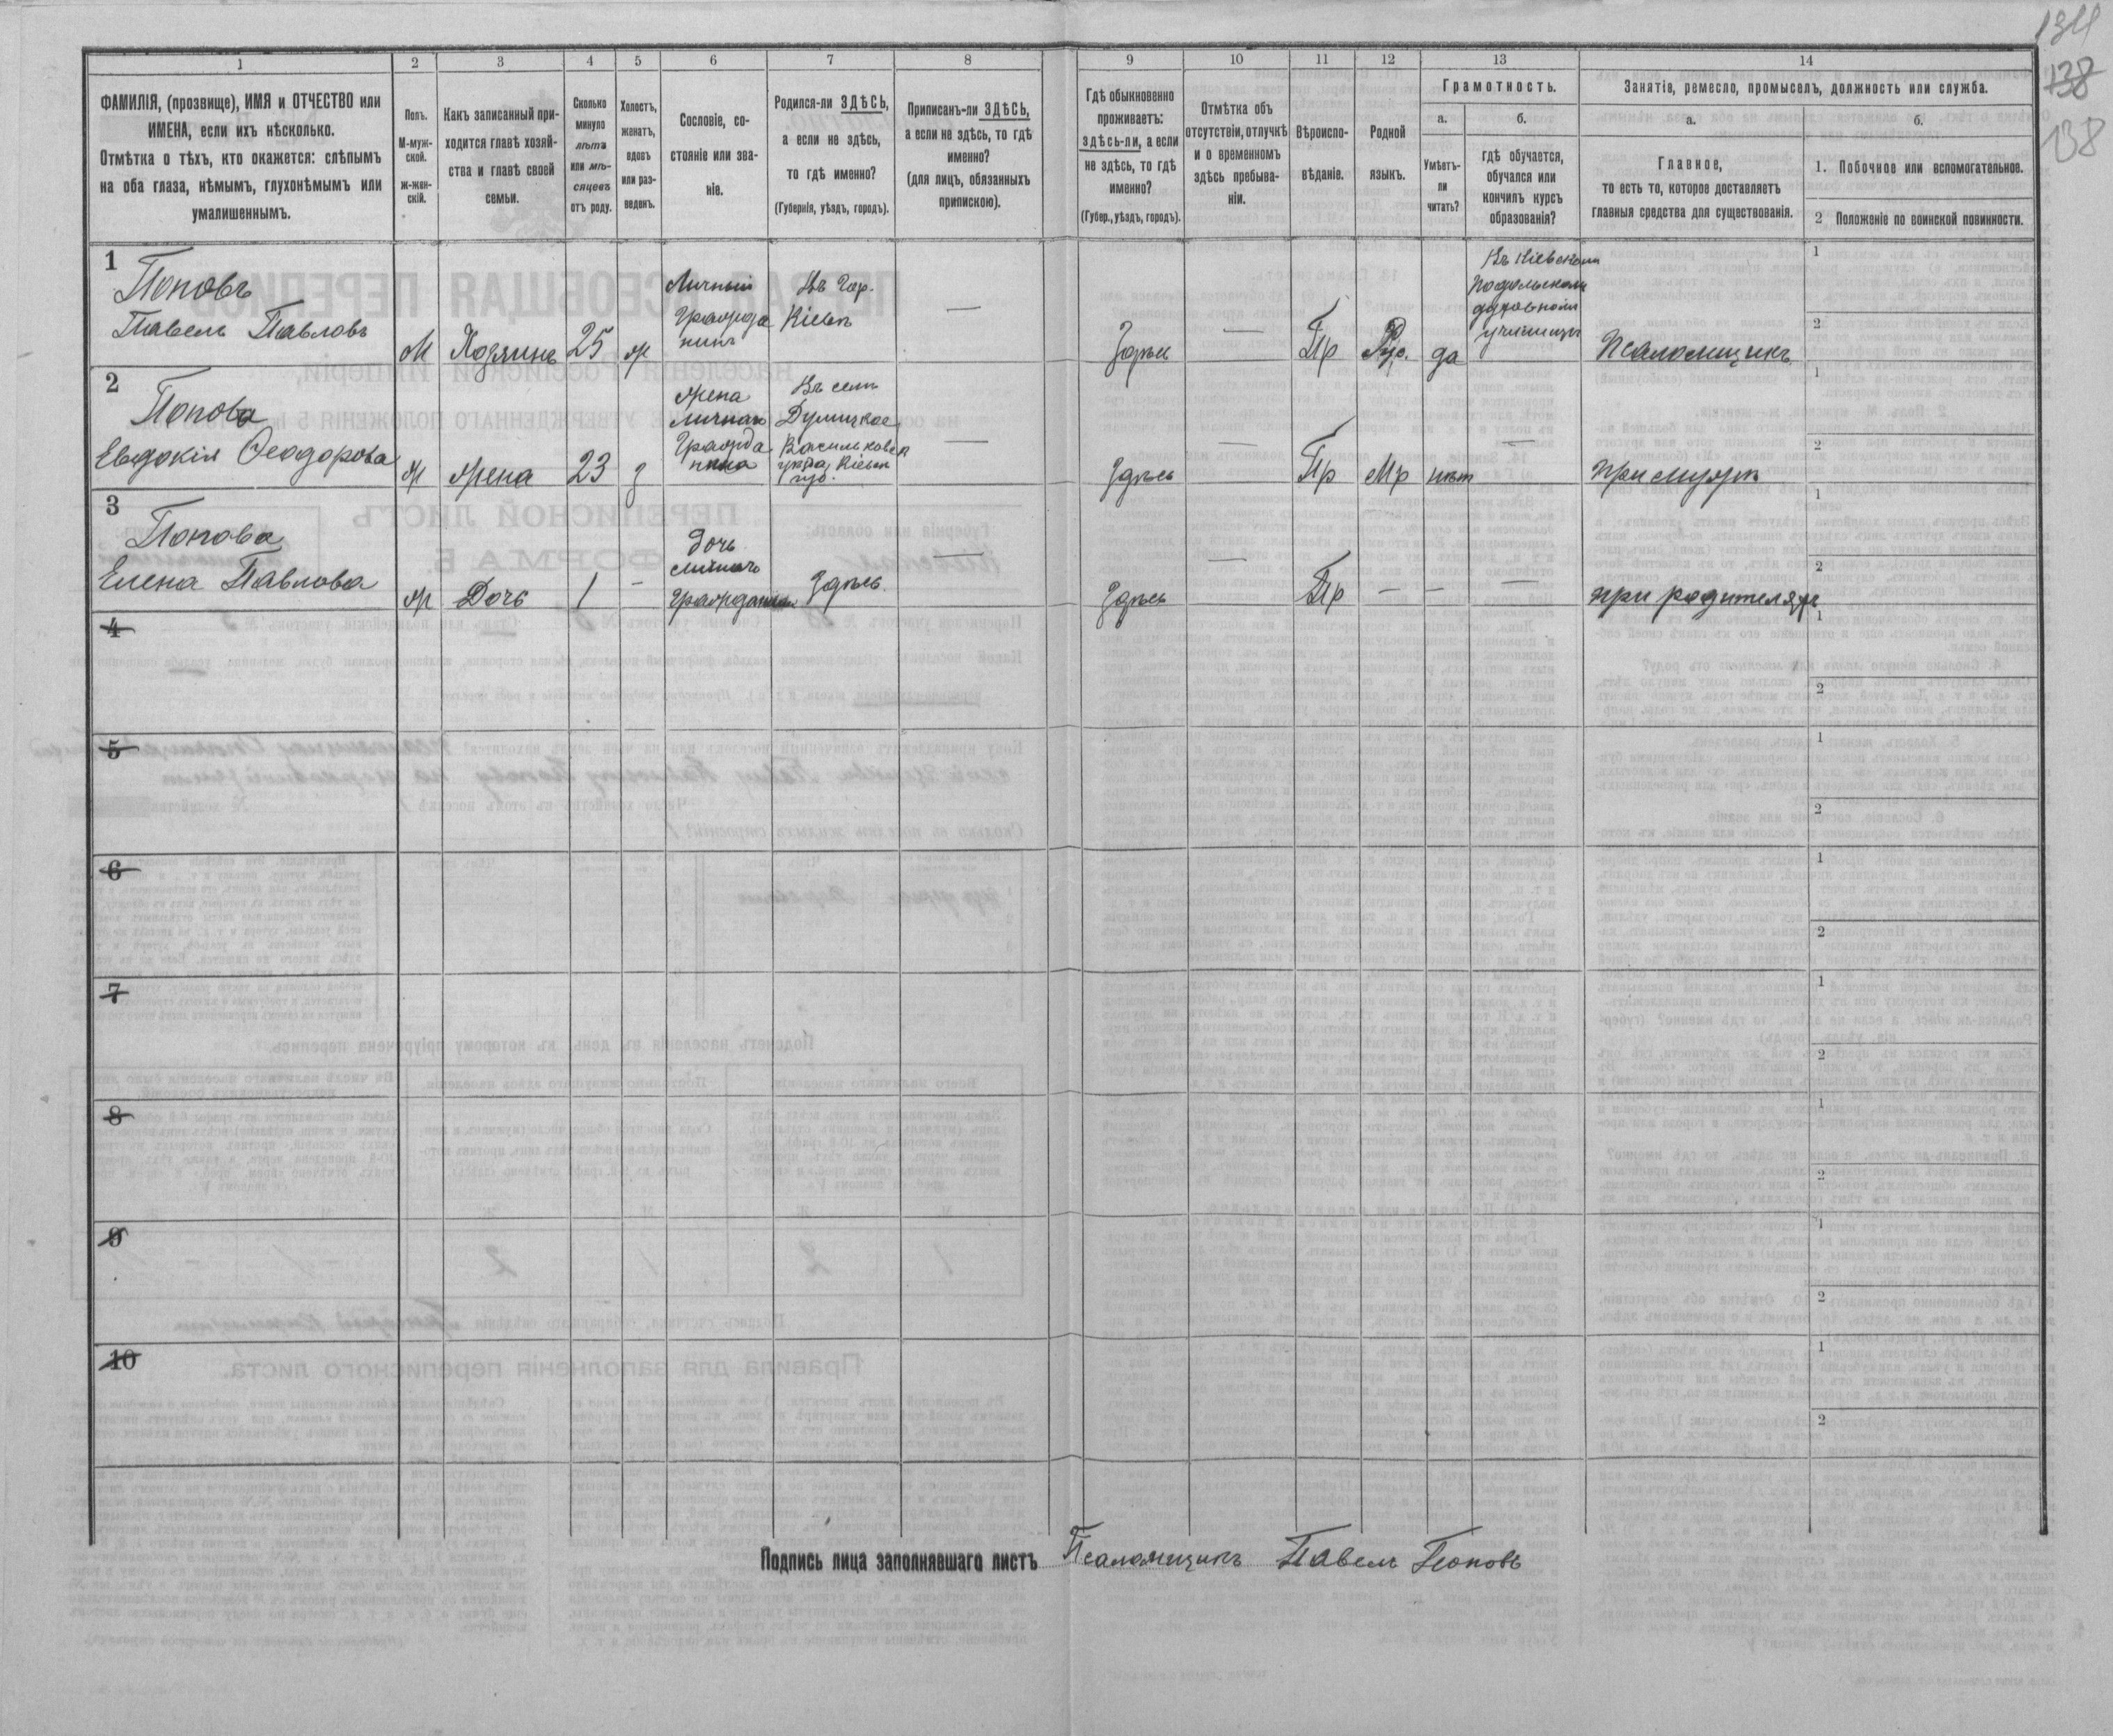 134
138
138
1 2 3 4 5 6 7 8 9 10 11 12 13 14
ФАМИЛІЯ, (прозвище), ИМЯ и ОТЧЕСТВО или
ИМЕНА, если ихъ нѣсколько.
Отмѣтка о тѣхъ, кто окажется: слѣпымъ
на оба глаза, нѣмымъ, глухонѣмымъ или
умалишеннымъ.
Полъ.
М-муж-
ской.
ж-жен-
скій.
Какъ записанный при-
ходится главѣ хозяй-
ства и главѣ своей
семьи.
Сколько
минуло
лѣтъ
или мѣ-
сяцевъ
отъ роду.
Холостъ,
женатъ,
вдовъ
или раз-
веденъ.
Сословіе, со-
стояніе или зва-
ніе.
Родился-ли ЗДѢСЬ,
а если не здѣсь,
то гдѣ именно?
(Губернія, уѣздъ, городъ).
Приписанъ-ли ЗДѢСЬ,
а если не здѣсь, то гдѣ
именно?
(для лицъ, обязанныхъ
припискою).
Гдѣ обыкновенно
проживаетъ:
здѣсь-ли, а если
не здѣсь, то гдѣ
именно?
(Губер., уѣздъ, городъ).
Отмѣтка объ
отсутствіи, отлучкѣ
и о временномъ
здѣсь пребыва-
ніи.
Вѣроиспо-
вѣданіе.
Родной
языкъ.
Грамотность.
а.
Умѣетъ-
ли
читать?
б.
гдѣ обучается,
обучался или
кончилъ курсъ
образованія?
Занятія, ремесло, промыселъ, должность или служба.
а.
Главное,
то есть то, которое доставляетъ
главныя средства для существованія.
б.
1. Побочное или вспомогательное.
2 Положеніе по воинской повинности.
1
Поповъ
Павелъ Павловъ
М
Хозяинъ
25
ж
Личный
Гражда
нинъ
Въ Гор.
Кіевѣ
—
Здѣсь
—
Пр
Рус.
да
Въ Кіевскомъ
Подольскомъ
духовномъ
училищѣ
Псаломщикъ
1
2
2
Попова
Евдокія Ѳеодорова
ж
Жена
23
з
жена
личнаго
Гражда
нина
Въ селѣ
Дулицкое
Васильковск
уѣзда, Кіевск
губ.
—
Здѣсь
—
Пр
Мр
нѣт
—
При мужѣ
1
2
3
Попова
Елена Павлова
ж
Дочь
1
-
Дочь
личнаго
Гражданина
Здѣсь.
—
Здѣсь
—
Пр
—
—
—
При родителях
1
2
4
1
2
5
1
2
6
1
2
7
1
2
8
1
2
9
1
2
10
1
2
Подпись лица заполнявшаго листъ Псаломщикъ Павелъ Поповъ